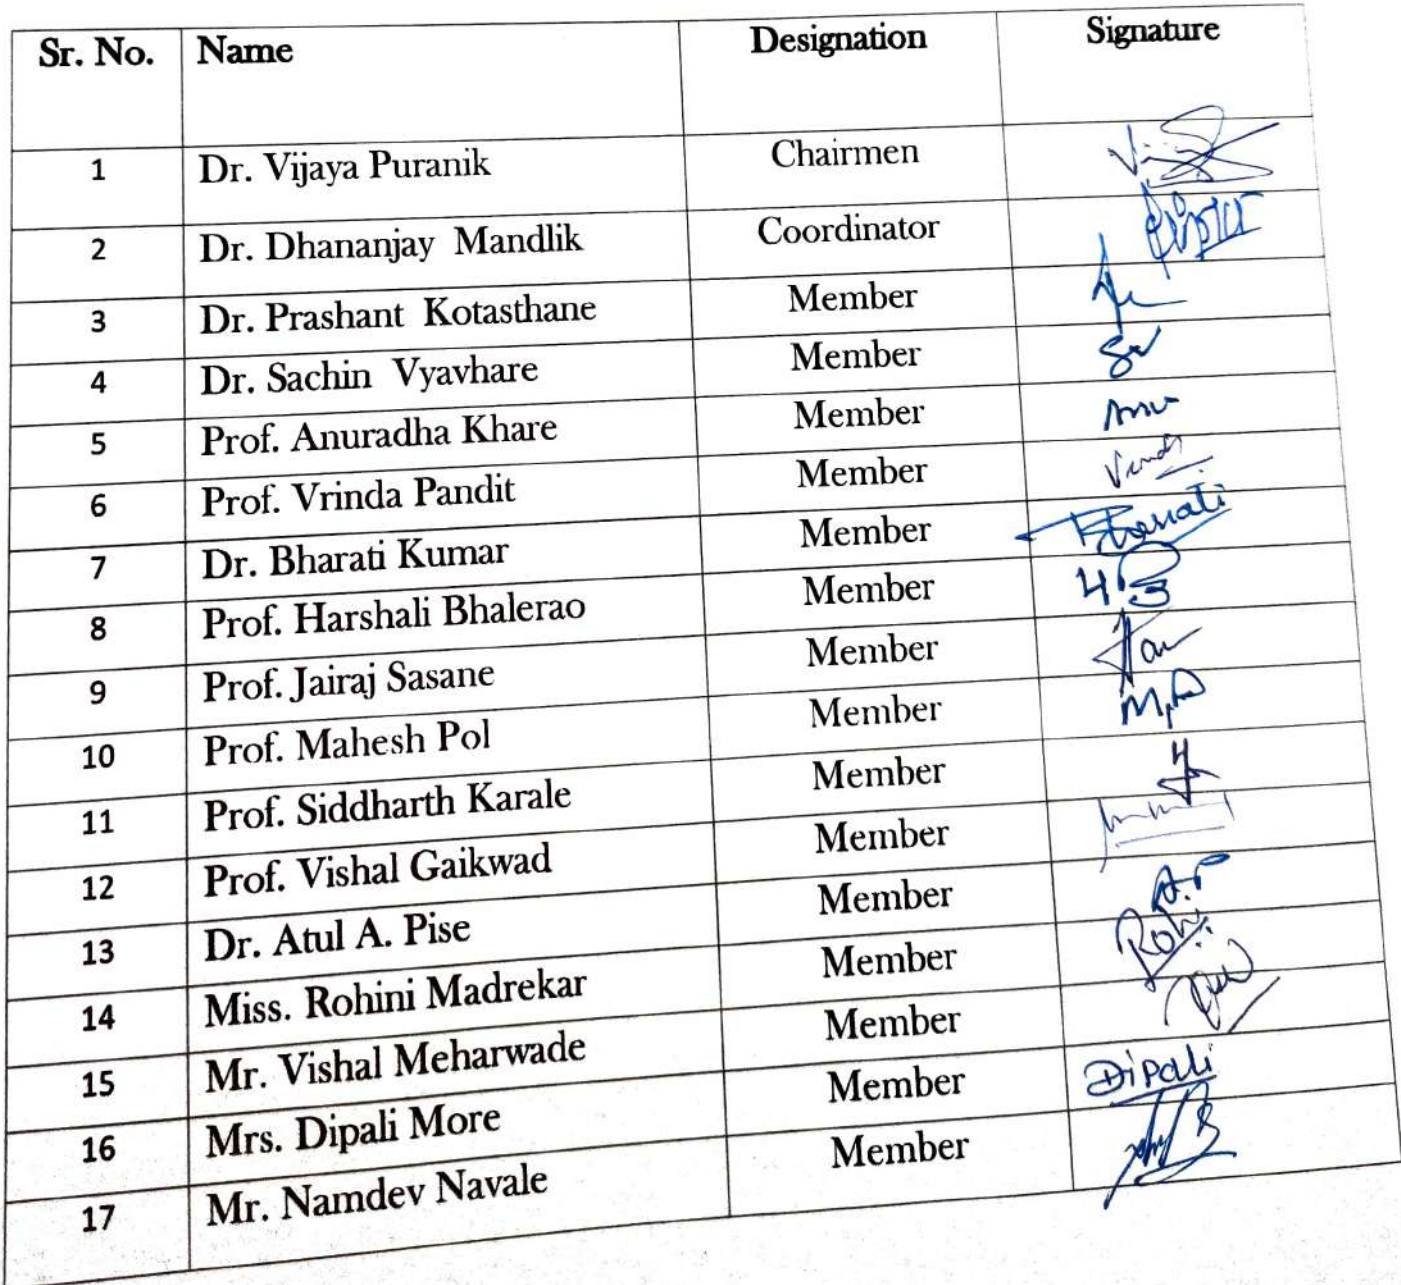 Sr. No. Name Designation Signature
1 Dr. Vijaya Puranik Chairmen
2 Dr. Dhananjay Mandlik Coordinator
3 Dr. Prashant Kotasthane Member
4 Dr. Sachin Vyavhare Member
5 Prof. Anuradha Khare Member
6 Prof. Vrinda Pandit Member
7 Dr. Bharati Kumar Member Bharati
8 Prof. Harshali Bhalerao Member
9 Prof. Jairaj Sasane Member
10 Prof. Mahesh Pol Member
11 Prof. Siddharth Karale Member
12 Prof. Vishal Gaikwad Member
13 Dr. Atul A. Pise Member A.P
14 Miss. Rohini Madrekar Member
15 Mr. Vishal Meharwade Member
16 Mrs. Dipali More Member Dipali
17 Mr. Namdev Navale Member